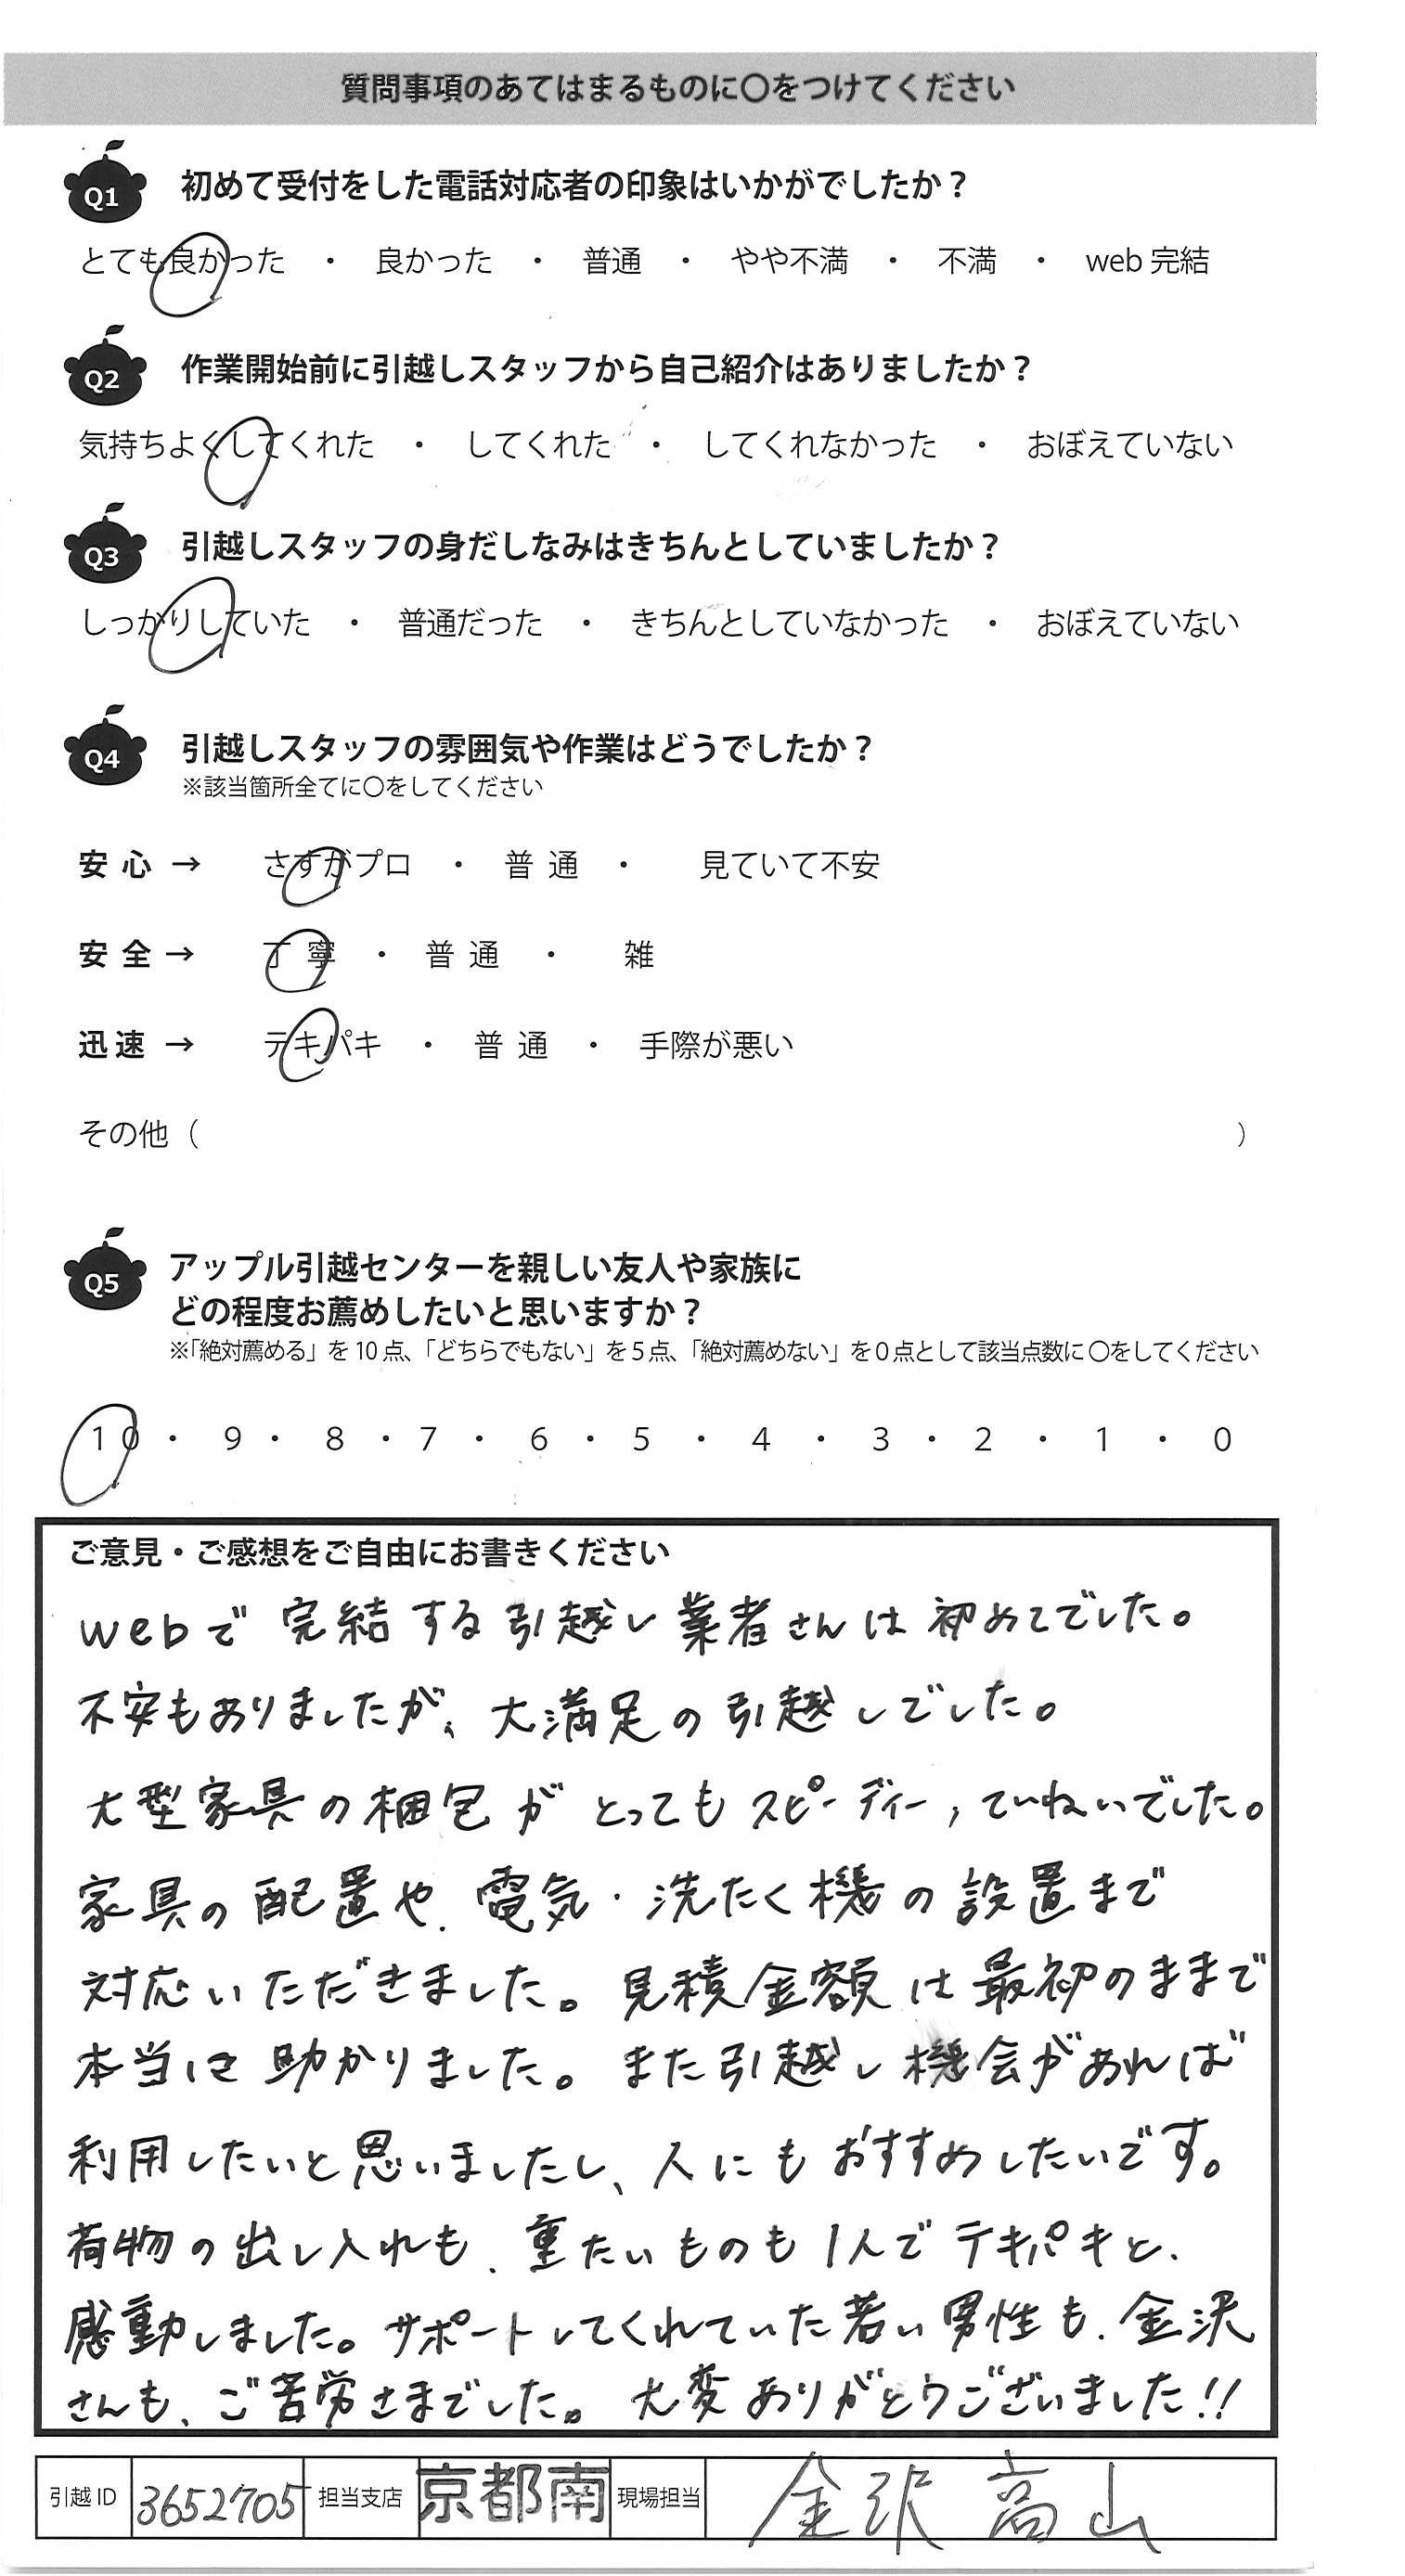 質問事項のあてはまるものに〇をつけてください
Q1 初めて受付をした電話対応者の印象はいかがでしたか？
とても良かった ・ 良かった ・ 普通 ・ やや不満 ・ 不満 ・ web完結
Q2 作業開始前に引越しスタッフから自己紹介はありましたか？
気持ちよくしてくれた ・ してくれた ・ してくれなかった ・ おぼえていない
Q3 引越しスタッフの身だしなみはきちんとしていましたか？
しっかりしていた ・ 普通だった ・ きちんとしていなかった ・ おぼえていない
Q4 引越しスタッフの雰囲気や作業はどうでしたか？
※該当箇所全てに〇をしてください
安心 → さすがプロ ・ 普通 ・ 見ていて不安
安全 → 丁寧 ・ 普通 ・ 雑
迅速 → テキパキ ・ 普通 ・ 手際が悪い
その他（ ）
Q5 アップル引越センターを親しい友人や家族に
どの程度お薦めしたいと思いますか？
※「絶対薦める」を10点、「どちらでもない」を5点、「絶対薦めない」を0点として該当点数に〇をしてください
10 ・ 9 ・ 8 ・ 7 ・ 6 ・ 5 ・ 4 ・ 3 ・ 2 ・ 1 ・ 0
ご意見・ご感想をご自由にお書きください
webで完結する引越し業者さんは初めてでした。
不安もありましたが、大満足の引越しでした。
大型家具の梱包がとってもスピーディー、ていねいでした。
家具の配置や、電気・洗たく機の設置まで
対応いただきました。見積金額は最初のままで
本当に助かりました。また引越し機会があれば
利用したいと思いましたし、人にもおすすめしたいです。
荷物の出し入れも、重たいものも1人でテキパキと、
感動しました。サポートしてくれていた若い男性も、金沢
さんも、ご苦労さまでした。大変ありがとうございました!!
引越ID 3652705 担当支店 京都南 現場担当 金沢 高山